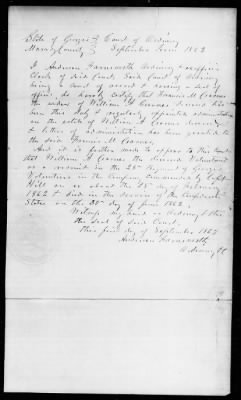 State of Georgia } Court of Ordinary
Murray County } September Term 1862
I Anderson Farnsworth Ordinary & exofficio
Clerk of said Court, Said Court of Ordinary
being a court of record & having a seal of
office, do hereby certify that Frances M
the widow of William F deceased has
been this day & regularly appointed administratrix
on the estate of William F deceased
& letters of administration has been granted to
the said Frances M
And it is further made to appear to this Court
that William F the deceased Volunteered
as a recruit in the Regiment of Georgia
Volunteers in the Company commanded by Capt
Hill on or about the 25th day of February
1862 & died in the service of the Confederate
States on the day of June 1862.
Witness my hand as Ordinary & the
the seal of said Court,
This first day of September 1862
Anderson Farnsworth
Ordinary